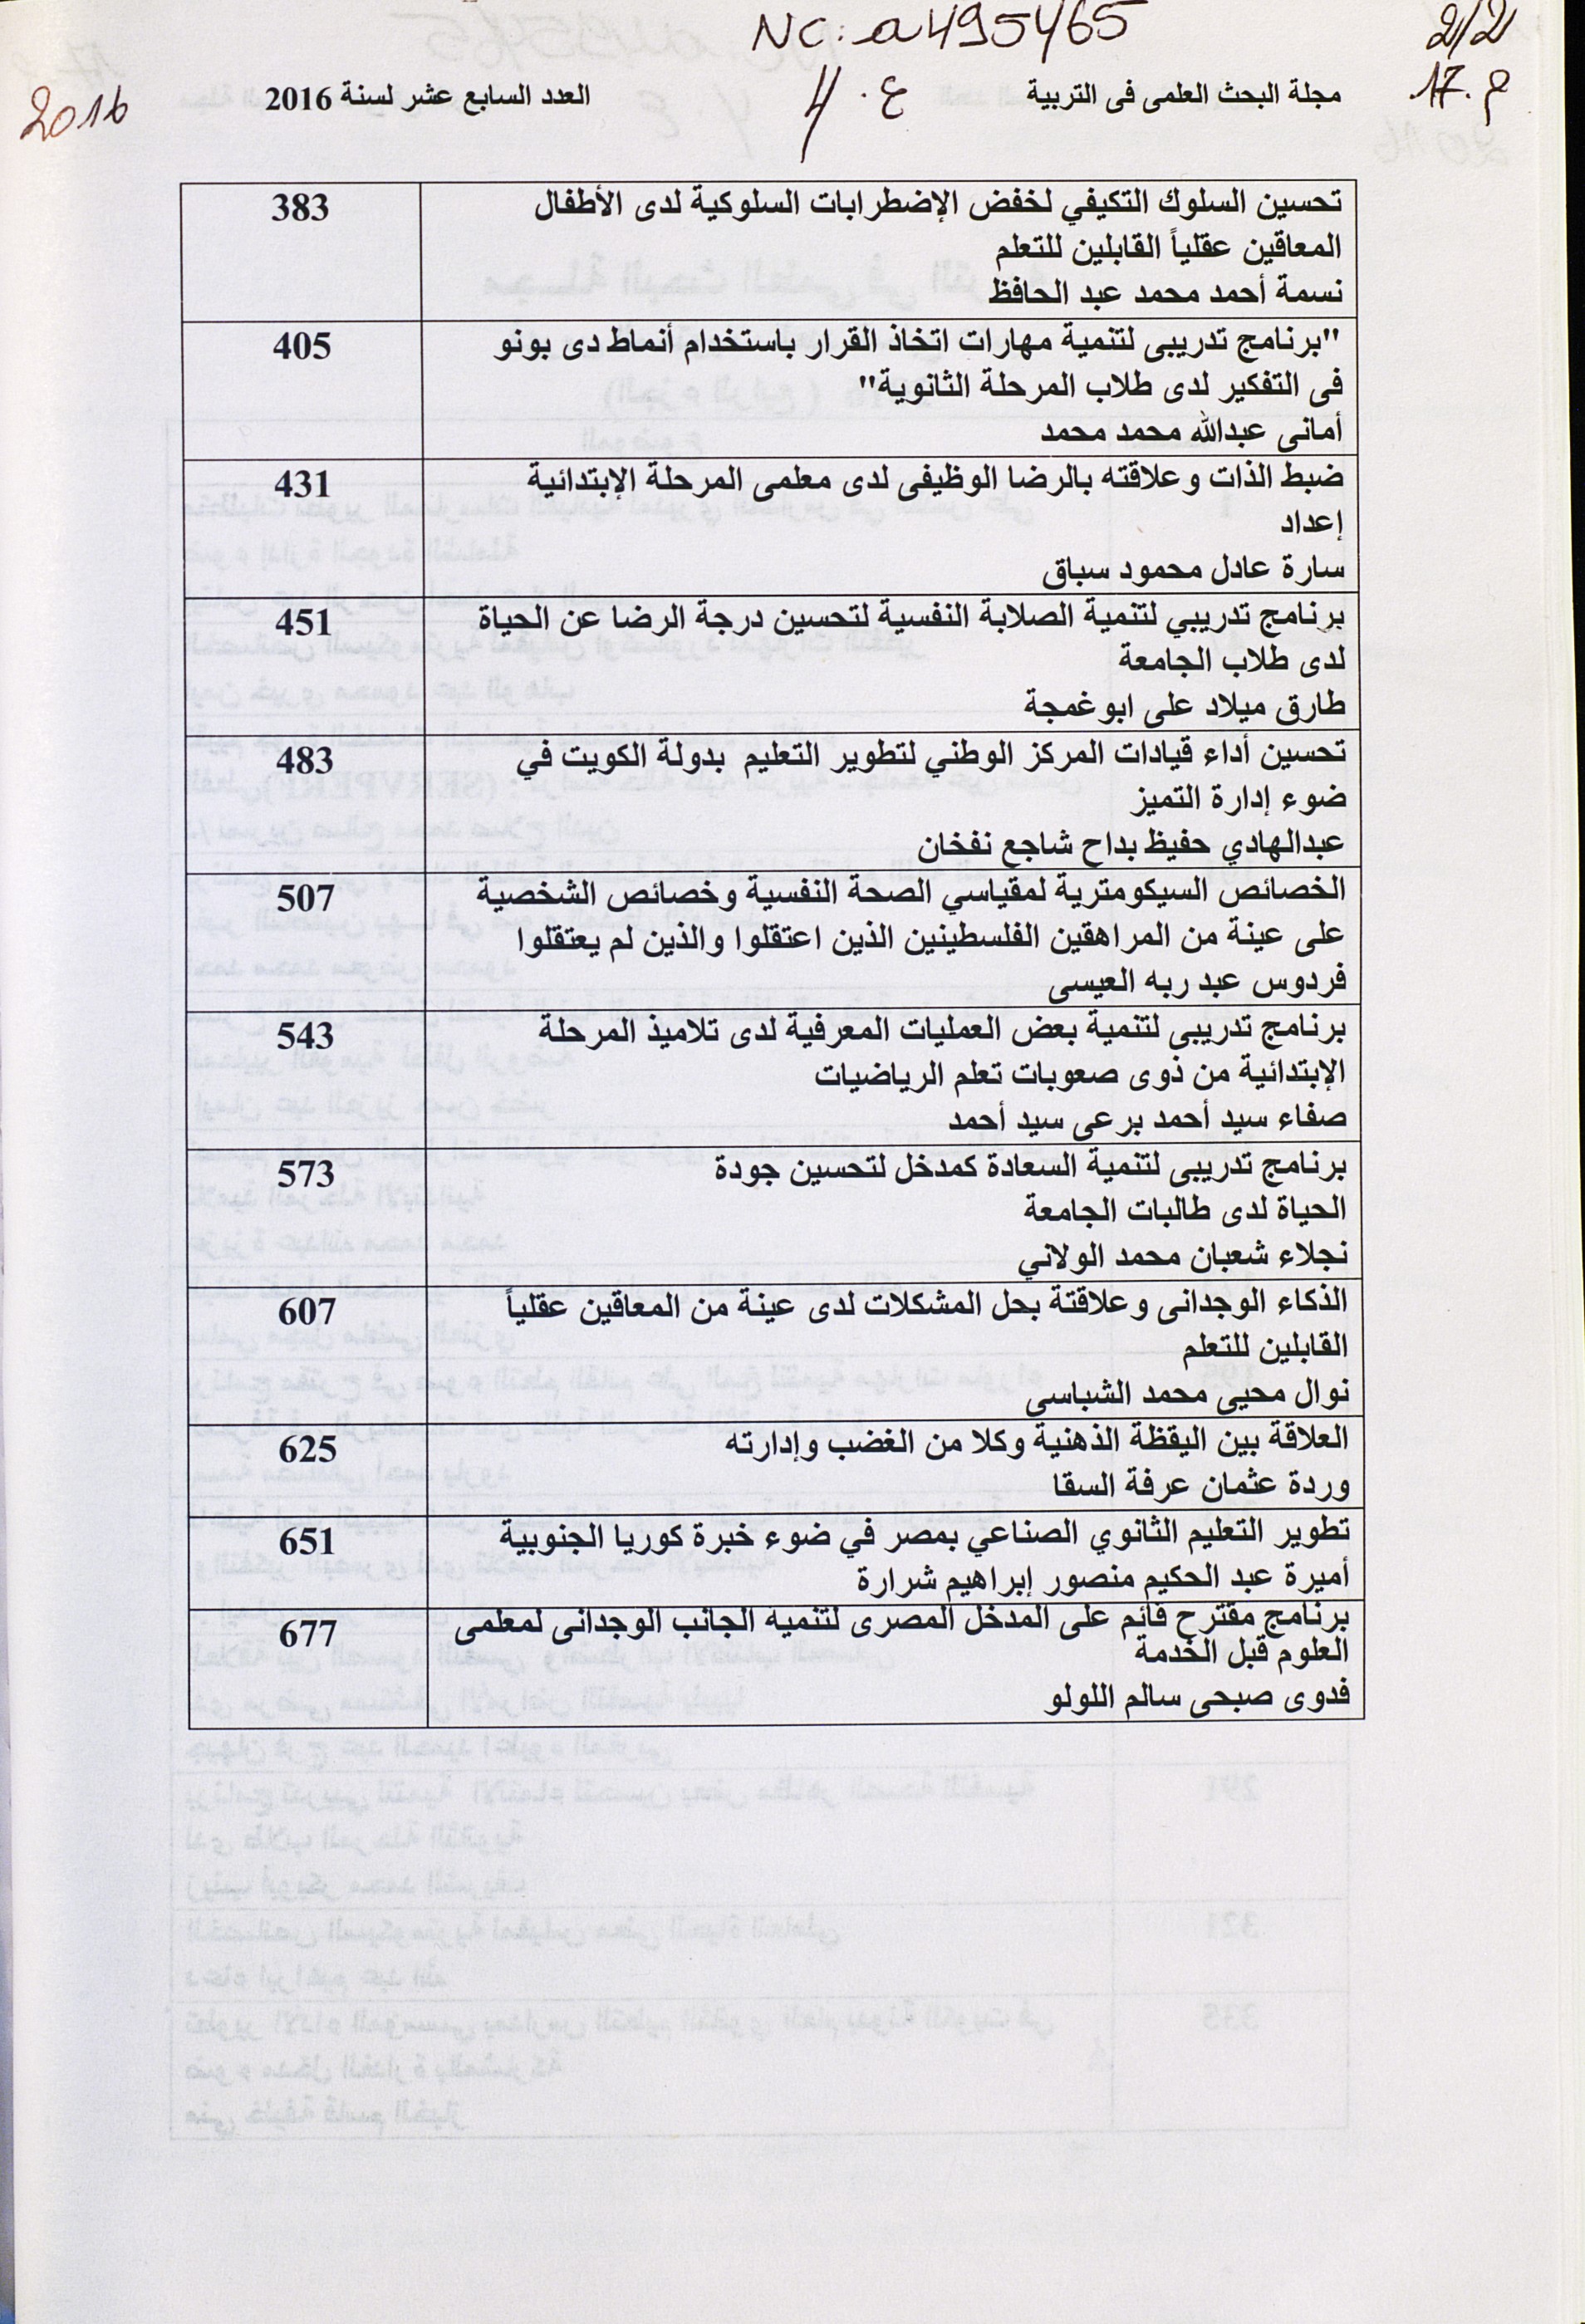 NC: a495465
2/2
مجلة البحث العلمى فى التربية
العدد السابع عشر لسنة 2016
م. 17
ع. 4
2016
تحسين السلوك التكيفي لخفض الإضطرابات السلوكية لدى الأطفال
المعاقين عقلياً القابلين للتعلم
نسمة أحمد محمد عبد الحافظ
383
"برنامج تدريبى لتنمية مهارات اتخاذ القرار باستخدام أنماط دى بونو
فى التفكير لدى طلاب المرحلة الثانوية"
أمانى عبدالله محمد محمد
405
ضبط الذات وعلاقته بالرضا الوظيفى لدى معلمى المرحلة الإبتدائية
إعداد
سارة عادل محمود سباق
431
برنامج تدريبي لتنمية الصلابة النفسية لتحسين درجة الرضا عن الحياة
لدى طلاب الجامعة
طارق ميلاد على ابوغمجة
451
تحسين أداء قيادات المركز الوطني لتطوير التعليم بدولة الكويت في
ضوء إدارة التميز
عبدالهادي حفيظ بداح شاجع نفخان
483
الخصائص السيكومترية لمقياسي الصحة النفسية وخصائص الشخصية
على عينة من المراهقين الفلسطينين الذين اعتقلوا والذين لم يعتقلوا
فردوس عبد ربه العيسى
507
برنامج تدريبى لتنمية بعض العمليات المعرفية لدى تلاميذ المرحلة
الإبتدائية من ذوى صعوبات تعلم الرياضيات
صفاء سيد أحمد برعى سيد أحمد
543
برنامج تدريبى لتنمية السعادة كمدخل لتحسين جودة
الحياة لدى طالبات الجامعة
نجلاء شعبان محمد الولاني
573
الذكاء الوجدانى وعلاقتة بحل المشكلات لدى عينة من المعاقين عقلياً
القابلين للتعلم
نوال محيى محمد الشباسي
607
العلاقة بين اليقظة الذهنية وكلا من الغضب وإدارته
وردة عثمان عرفة السقا
625
تطوير التعليم الثانوي الصناعي بمصر في ضوء خبرة كوريا الجنوبية
أميرة عبد الحكيم منصور إبراهيم شرارة
651
برنامج مقترح قائم على المدخل المصرى لتنمية الجانب الوجدانى لمعلمى
العلوم قبل الخدمة
فدوى صبحى سالم اللولو
677